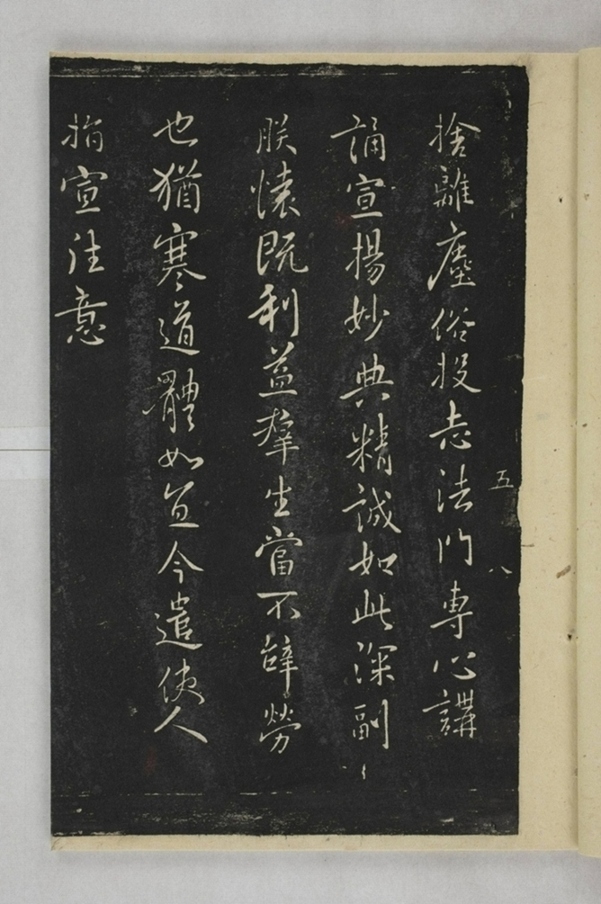 捨離塵俗投志法門專心講
誦宣揚妙典精誠如此深副
朕懷既利益羣生當不辭勞
也猶寒道體如宜今遣使人
指宣往意
五
八